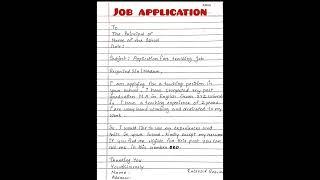 JOB APPLICATION
To
The Principal of
Name of the School
Date:
Subject: Application for teaching Job
Respected Sir/Madam,
I am applying for a teaching position in
your school. I have completed my post
graduation M.A in English from
I have a teaching experience of 2 years.
I am very hard working and dedicated to my
work.
So, I would like to use my experiences and
skills in your school. Kindly accept my resume
If you find me eligible for this post you can
call me. In this number
Thanking You
Yours Sincerely
Name:
Address: